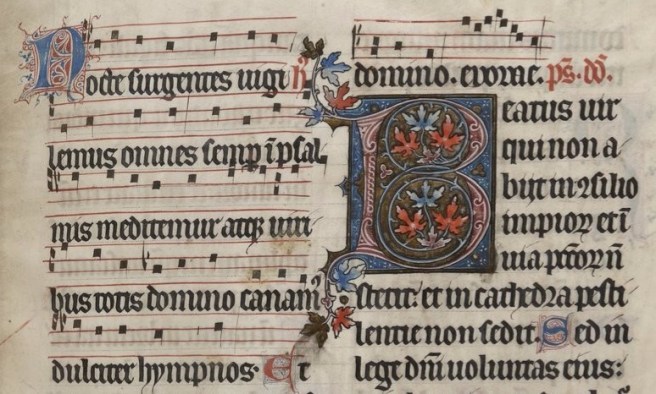 Nocte surgentes uigi h̕
lemus omnes semp ī psal
mis meditemur atqꝫ uiri
bus totis domino canamꝰ
dulciter hympnos. Et
domino. evovae. ps̄. dd̄.
Beatus uir
qui non a
bijt in ꝯsilio
impioꝝ et ī
uia pctōꝝ n̄
stetit: et in cathedra pesti
lentie non sedit. Sed in
lege dn̄i uoluntas eius: